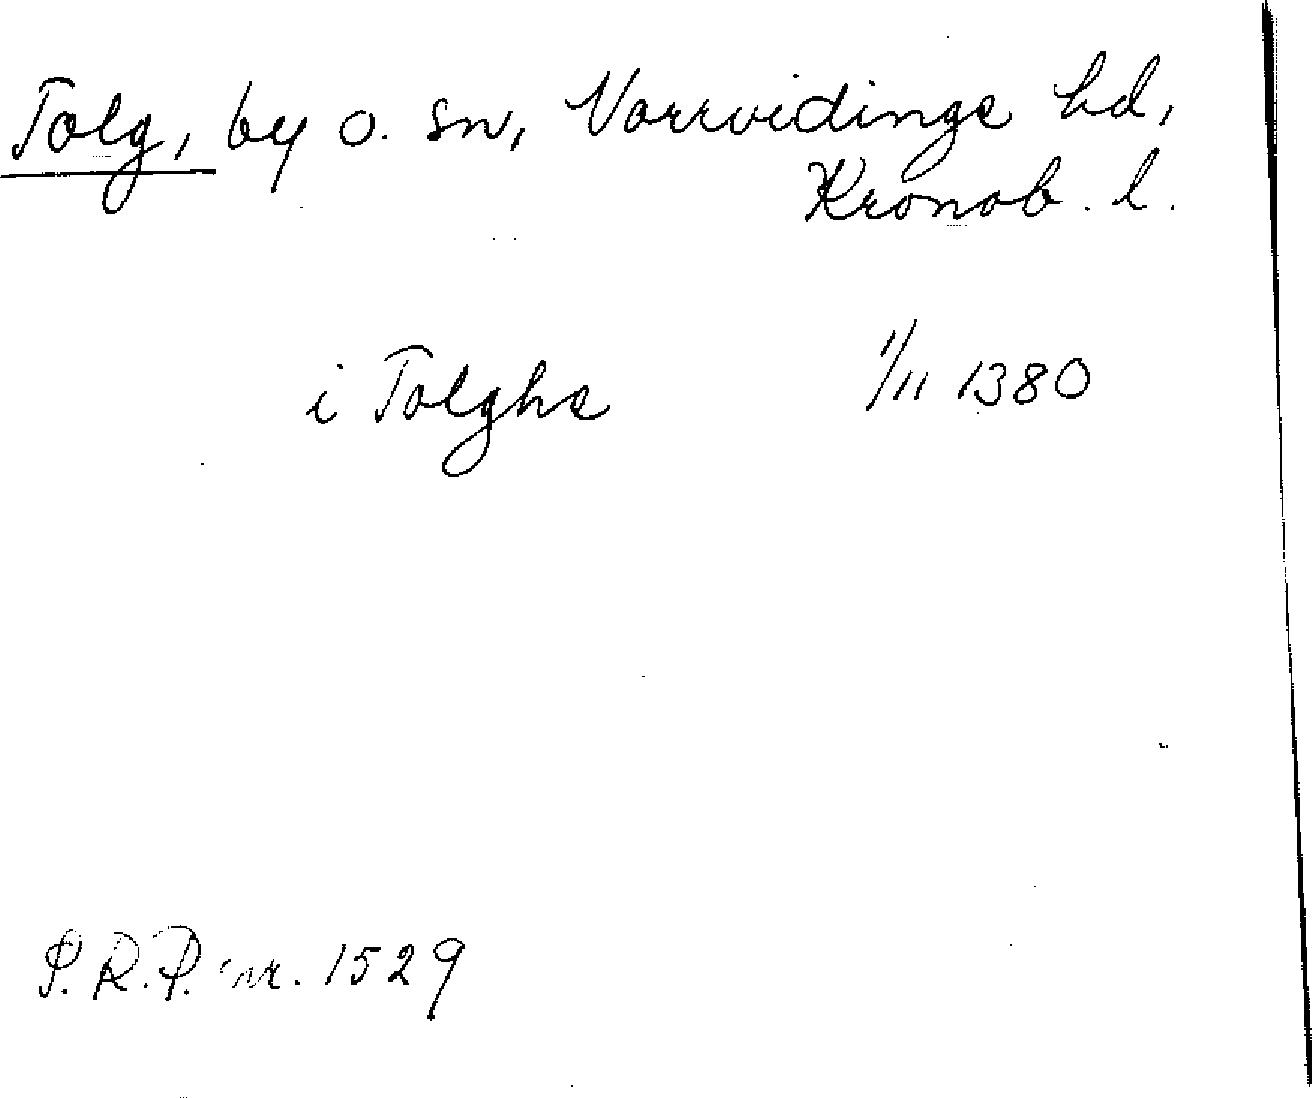 Tolg, by o. sn, Norrvidinge hd,
Kronob. l.
i Tolghe 1/11 1380
P.R.P. nr. 1529